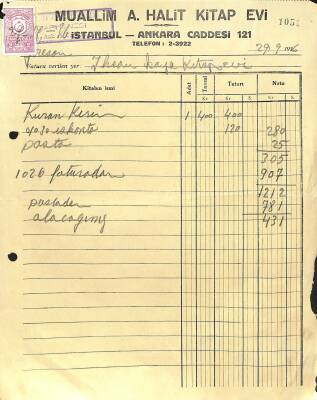 MUALLİM A. HALİT KİTAP EVİ
1051
İSTANBUL — ANKARA CADDESİ 121
TELEFON : 2-3922
29.9.
Fatura verilen yer: İhsan Kaya Kitap evi
Kitabın ismi Adet Tutarı Tutarı Note
Kr. Kr.
Kuran Kerim 1 400 400
%30 iskonto 120 280
posta 25
305
1026 faturadan 907
1212
postadan 781
alacağımız 431